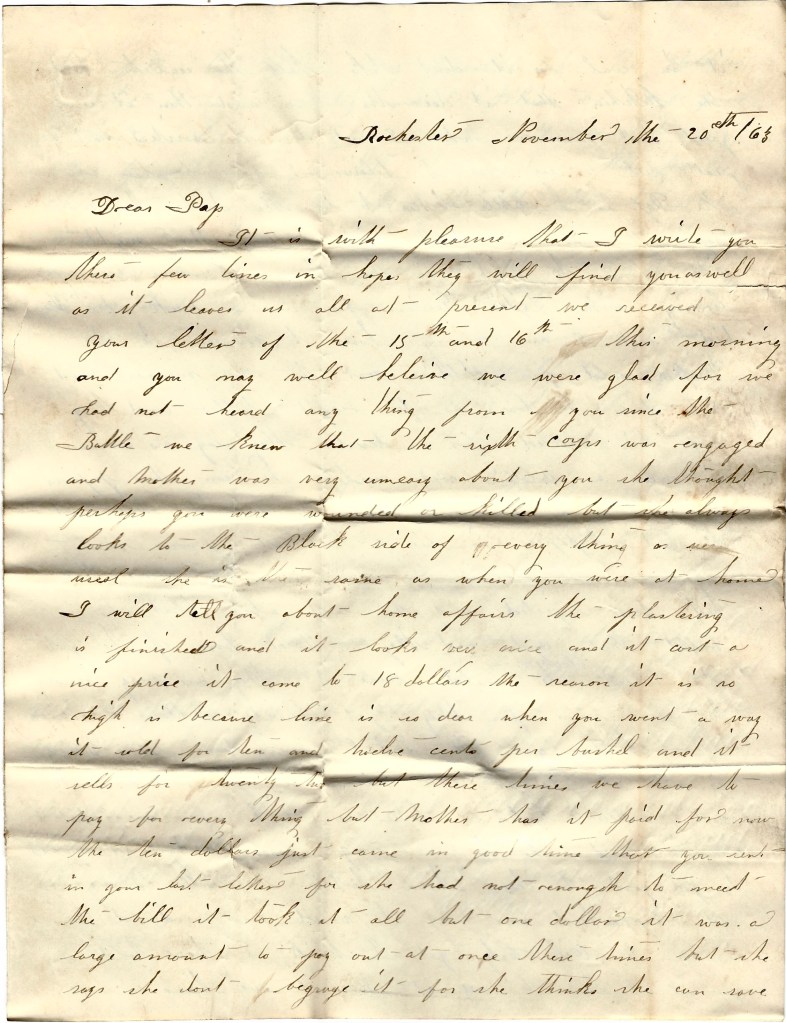 Rochester November the 20th /63
Dear Pap
It is with pleasure that I write you
these few lines in hopes they will find you as well
as it leaves us all at present we received
your letter of the 15th and 16th this morning
and you may well beleive we were glad for we
had not heard any thing from you since the
Battle we knew that the sixth corps was engaged
and Mother was very uneasy about you she thought
perhaps you were wounded or killed but she always
looks to the Black side of every thing as
usul she is the same as when you were at home
I will tell you about home affairs the plastering
is finished and it looks very nice and it cost a
nice price it come to 18 dollars the reason it is so
high is because lime is so dear when you went a way
it sold for ten and twelve cents per bushel and it
sells for twenty two but these times we have to
pay for every thing but Mother has it paid for now
the ten dollars just came in good time that you sent
in your last letter for she had not enough to meet
the bill it took it all but one dollar it was a
large amount to pay out at once these times but she
says she dont begruge it for she thinks she can save